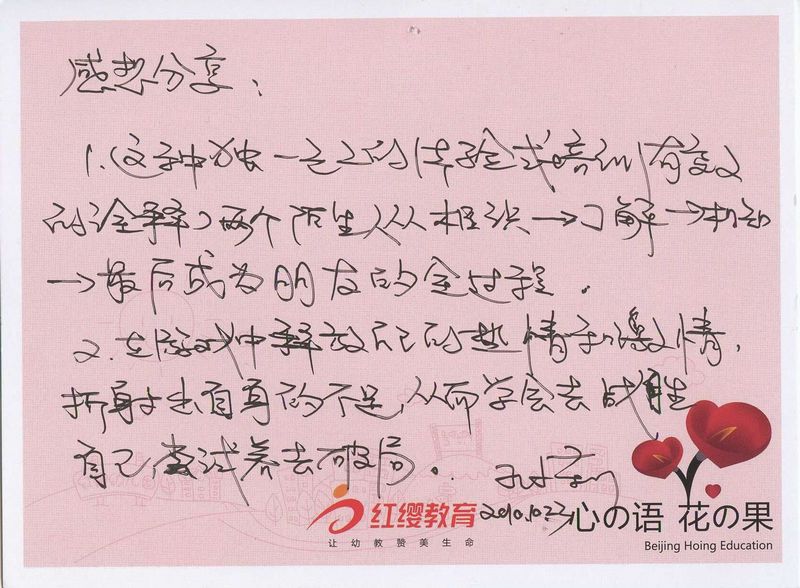 感想分享：
1.这种独一无二的体验式培训有效
的诠释了两个陌生人从相识→了解→相知
→最后成为朋友的全过程。
2.在游戏中释放自己的热情和激情，
折射出自身的不足，从而学会去战胜
自己，尝试着去破局。
2010.10.23
红缨教育
让幼教赞美生命
心の语 花の果
Beijing Hoing Education